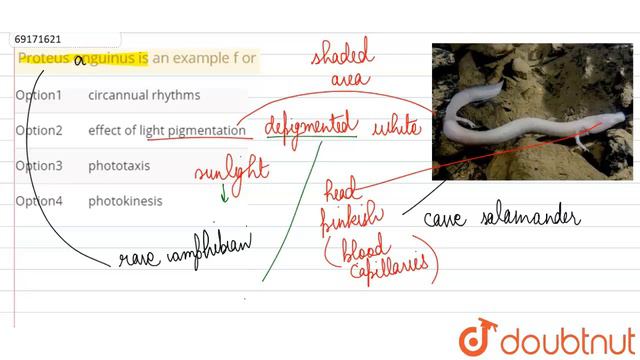 69171621
Proteus anguinus is an example f or
Option1 circannual rhythms
Option2 effect of light pigmentation
Option3 phototaxis
Option4 photokinesis
shaded
area
defigmented white
sunlight
head
pinkish
(blood
capillaries)
cave salamander
rare amphibian
doubtnut